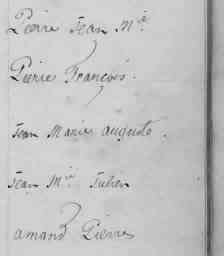 Pierre Jean Mie
Pierre François.
Jean Marie auguste.
Jean Mie Julien
amand Pierre